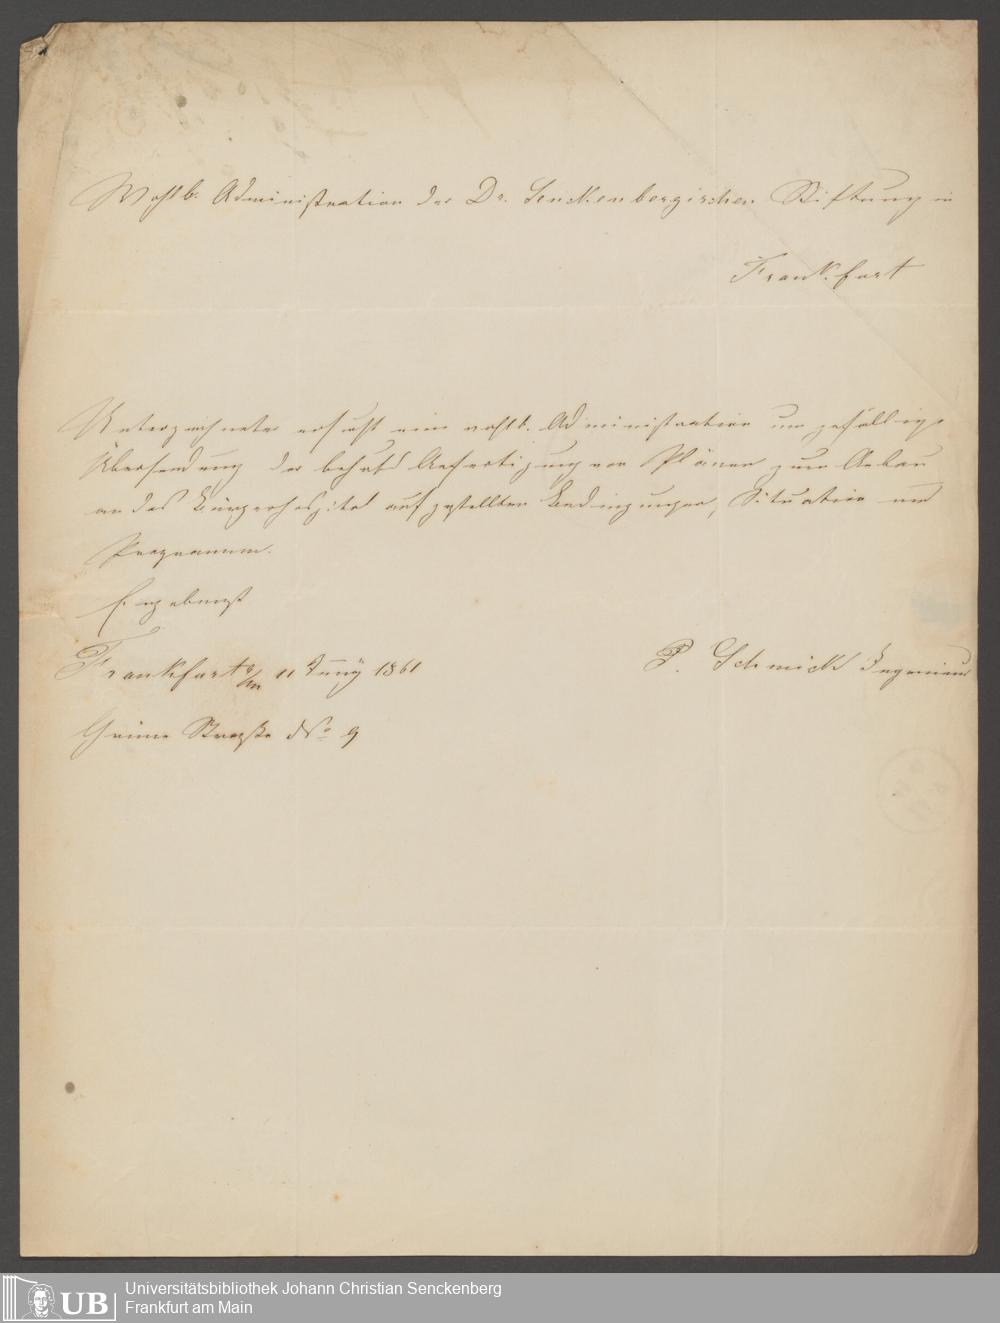 Wohlb. Administration der Dr. Senckenbergischen Stiftung in
Frankfurt
Unterzeichneter ersucht eine wohlb. Administration um gefällige
Übersendung der behufs Anfertigung von Plänen zum Anbau
an das Bürgerhospital aufgestellten Bedingungen, Situation und
Programm.
Ergebenst
Frankfurt a/m 11 Juny 1861
P. Schmick Ingenieur
Grüne Straße No 9
UB
Universitätsbibliothek Johann Christian Senckenberg
Frankfurt am Main